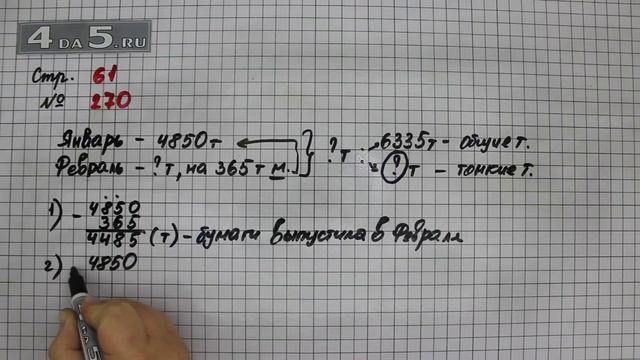 4DA5.RU
Стр. 61
№ 270
Январь - 4850т
Февраль - ?т, на 365т м.
? т : 6335т - общие т.
? т - тонкие т.
1) - 4850
365
4485 (т) - бумаги выпустила в Феврале
2) 4850